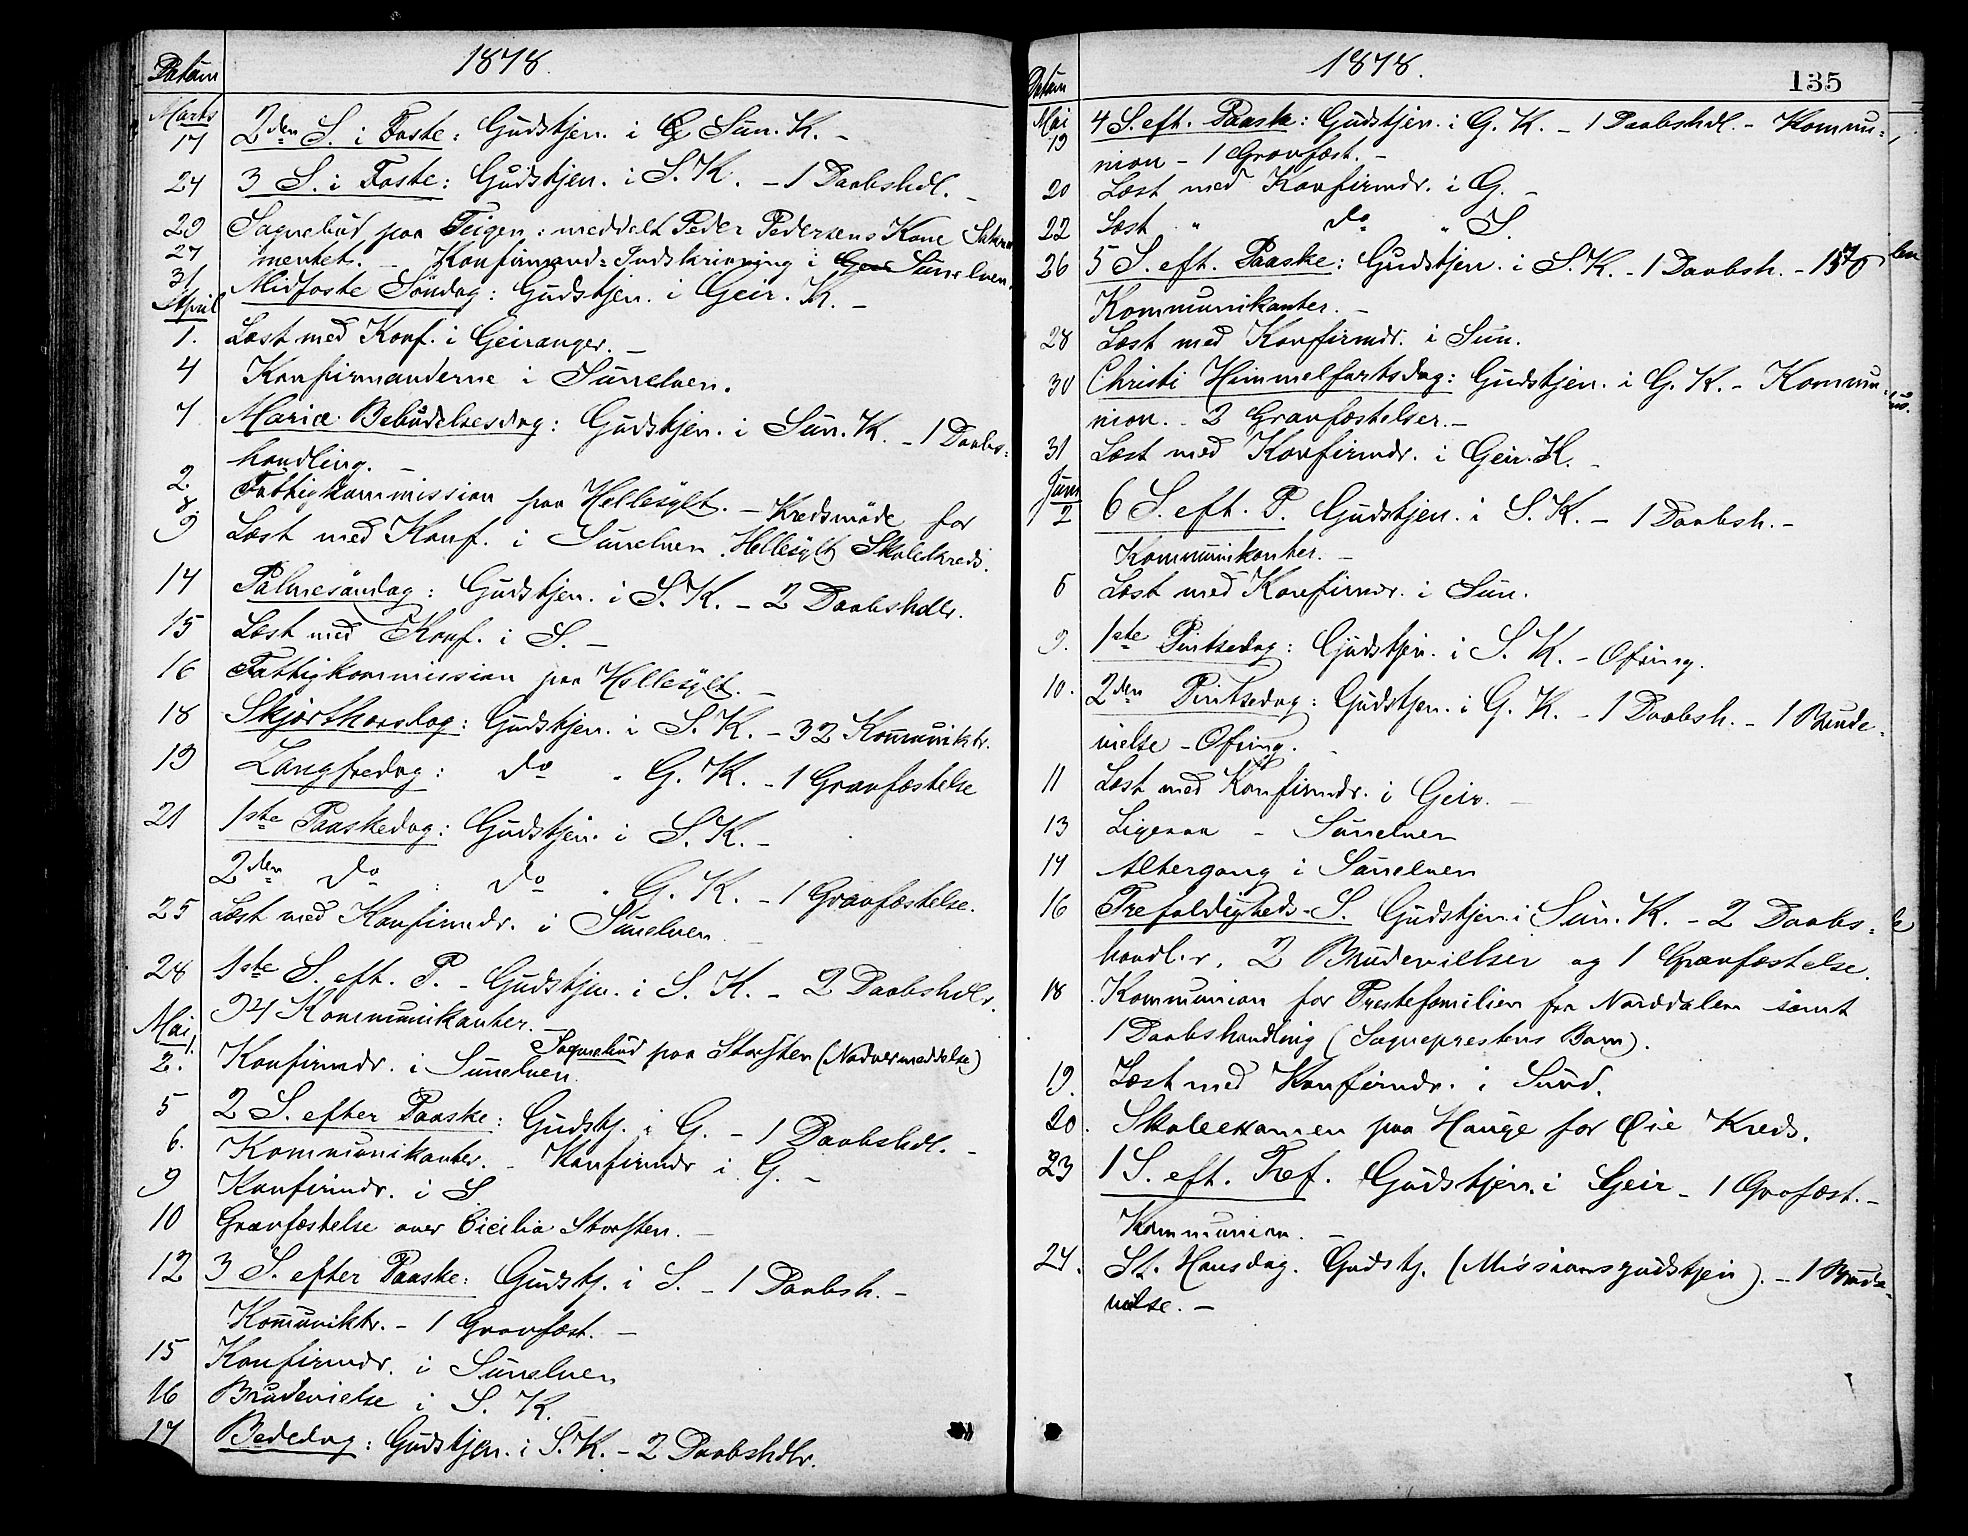 Datum
1878.
Marts
17 2den S. i Faste: Gudstjen. i Sun. K. –
24 3 S. i Faste: Gudstjen. i S. K. – 1 Daabshdl. –
29 Sognebud paa Teigen: meddelt Peder Pedersens Kone Sakra
27 mentet. – Konfirmand=Indskrivning i Sunelven.
31 Midfaste Söndag: Gudstjen. i Geir. K. –
April
1. Læst med Konf. i Geiranger. –
4 Konfirmanderne i Sunelven.
7 Mariæ Bebudelsesdag: Gudstjen. i Sun. K. – 1 Daabs=
handling. –
2. Fattigkommission paa Hellesylt. – Kredsmöde for
8.
9 Læst med Konf. i Sunelven. Hellesylt Skolekreds.
14 Palmesöndag: Gudstjen. i S. K. – 2 Daabshdlr.
15 Læst med Konf. i S. –
16 Fattigkommission paa Hellesylt. –
18 Skjærthorsdag: Gudstjen. i S. K. – 32 Kommuniktr.
19 Langfredag: do " G. K. – 1 Gravfæstelse
21 1ste Paaskedag: Gudstjen. i S. K. –
2den do : do " G. K. – 1 Gravfæstelse.
25 Læst med Konfirmdr. i Sunelven –
28 1ste S. eft. P. – Gudstjen. i S. K. – 2 Daabshdlr.
34 Kommunikanter. –
Mai
1. Sognebud paa Storsten (Nadvermeddelse)
2. Konfirmdr. i Sunelven.
5 2 S. efter Paaske: Gudstj. i G. – 1 Daabshdl. –
6. Kommunikanter. – Konfirmdr i G. –
9 Konfirmdr. i S
10 Gravfæstelse over Cicilia Storsten. –
12 3 S. efter Paaske: Gudstj. i S. – 1 Daabsh. –
Kommuniktr. – 1 Gravfæst. –
15 Konfirmdr. i Sunelven
16 Brudevielse i S. K.
17 Bededag: Gudstjen. i S. K. – 2 Daabshdlr.
Datum
1878.
135
Mai
19 4 S. eft. Paaske: Gudstjen. i G. K. – 1 Daabshdl. – Kommu=
nion – 1 Gravfæst. –
20 Læst med Konfirmdr. i G. –
22 Læst " do " S.
26 5 S. eft. Paaske: Gudstjen. i S. K. – 1 Daabsh. –
Kommunikanter. –
28 Læst med Konfirmdr. i Sun.
30 Christi Himmelfartsdag: Gudstjen. i G. K. – Kommu=
nion. – 2 Gravfæstelser. –
31 Læst med Konfirmdr. i Geir. K. –
Juni
2 6 S. eft. P. Gudstjen. i S. K. – 1 Daabsh. –
Kommunikanter. –
6 Læst med Konfirmdr. i Sun.
9. 1ste Pintsedag: Gudstjen. i S. K. – Ofring.
10. 2den Pintsedag: Gudstjen. i G. K. – 1 Daabsh. – 1 Brude=
vielse – Ofring. –
11 Læst med Konfirmdr. i Geir. –
13 Ligesaa – Sunelven
14 Altergang i Sunelven
16 Trefoldigheds-S. Gudstjen. i Sun. K. – 2 Daabs=
handlr, 2 Brudevielser og 1 Gravfæstelse.
18 Kommunion for Prestefamilien fra Norddalen samt
1 Daabshandling (Sogneprestens Barn).
19. Læst med Konfirmdr. i Sund.
20. Skoleexamen paa Hauge for Øie Kreds.
23 1 S. eft. Tref. Gudstjen. i Geir – 1 Grafæst. –
Kommunion. –
24. St. Hansdag. Gudstj. (Missionsgudstjen). – 1 Brude=
vielse. –